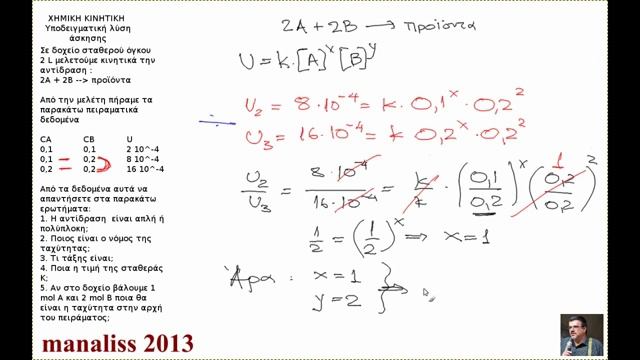 ΧΗΜΙΚΗ ΚΙΝΗΤΙΚΗ
Υποδειγματική λύση
άσκησης
Σε δοχείο σταθερού όγκου
2 L μελετούμε κινητικά την
αντίδραση :
2Α + 2Β --> προϊόντα
Από την μελέτη πήραμε τα
παρακάτω πειραματικά
δεδομένα
CA CB U
0,1 0,1 2 10^-4
0,1 0,2 8 10^-4
0,2 0,2 16 10^-4
Από τα δεδομένα αυτά να
απαντήσετε στα παρακάτω
ερωτήματα:
1. Η αντίδραση είναι απλή ή
πολύπλοκη;
2. Ποιος είναι ο νόμος της
ταχύτητας;
3. Τι τάξης είναι;
4. Ποια η τιμή της σταθεράς
Κ;
5. Αν στο δοχείο βάλουμε 1
mol A και 2 mol B ποια θα
είναι η ταχύτητα στην αρχή
του πειράματος;
2A + 2B → προϊόντα
U = k·[A]^x [B]^y
U₂ = 8·10⁻⁴ = k·0,1^x·0,2²
U₃ = 16·10⁻⁴ = k 0,2^x·0,2²
U₂/U₃ = 8·10⁻⁴/16·10⁻⁴ = k/k·(0,1/0,2)^x (0,2/0,2)² 1
1/2 = (1/2)^x ⇒ x=1
Άρα : x=1
y=2 } ⇒
manaliss 2013